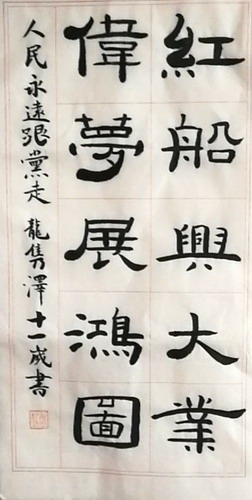 紅船興大業
偉夢展鴻圖
人民永遠跟黨走 龍雋澤十一歲書